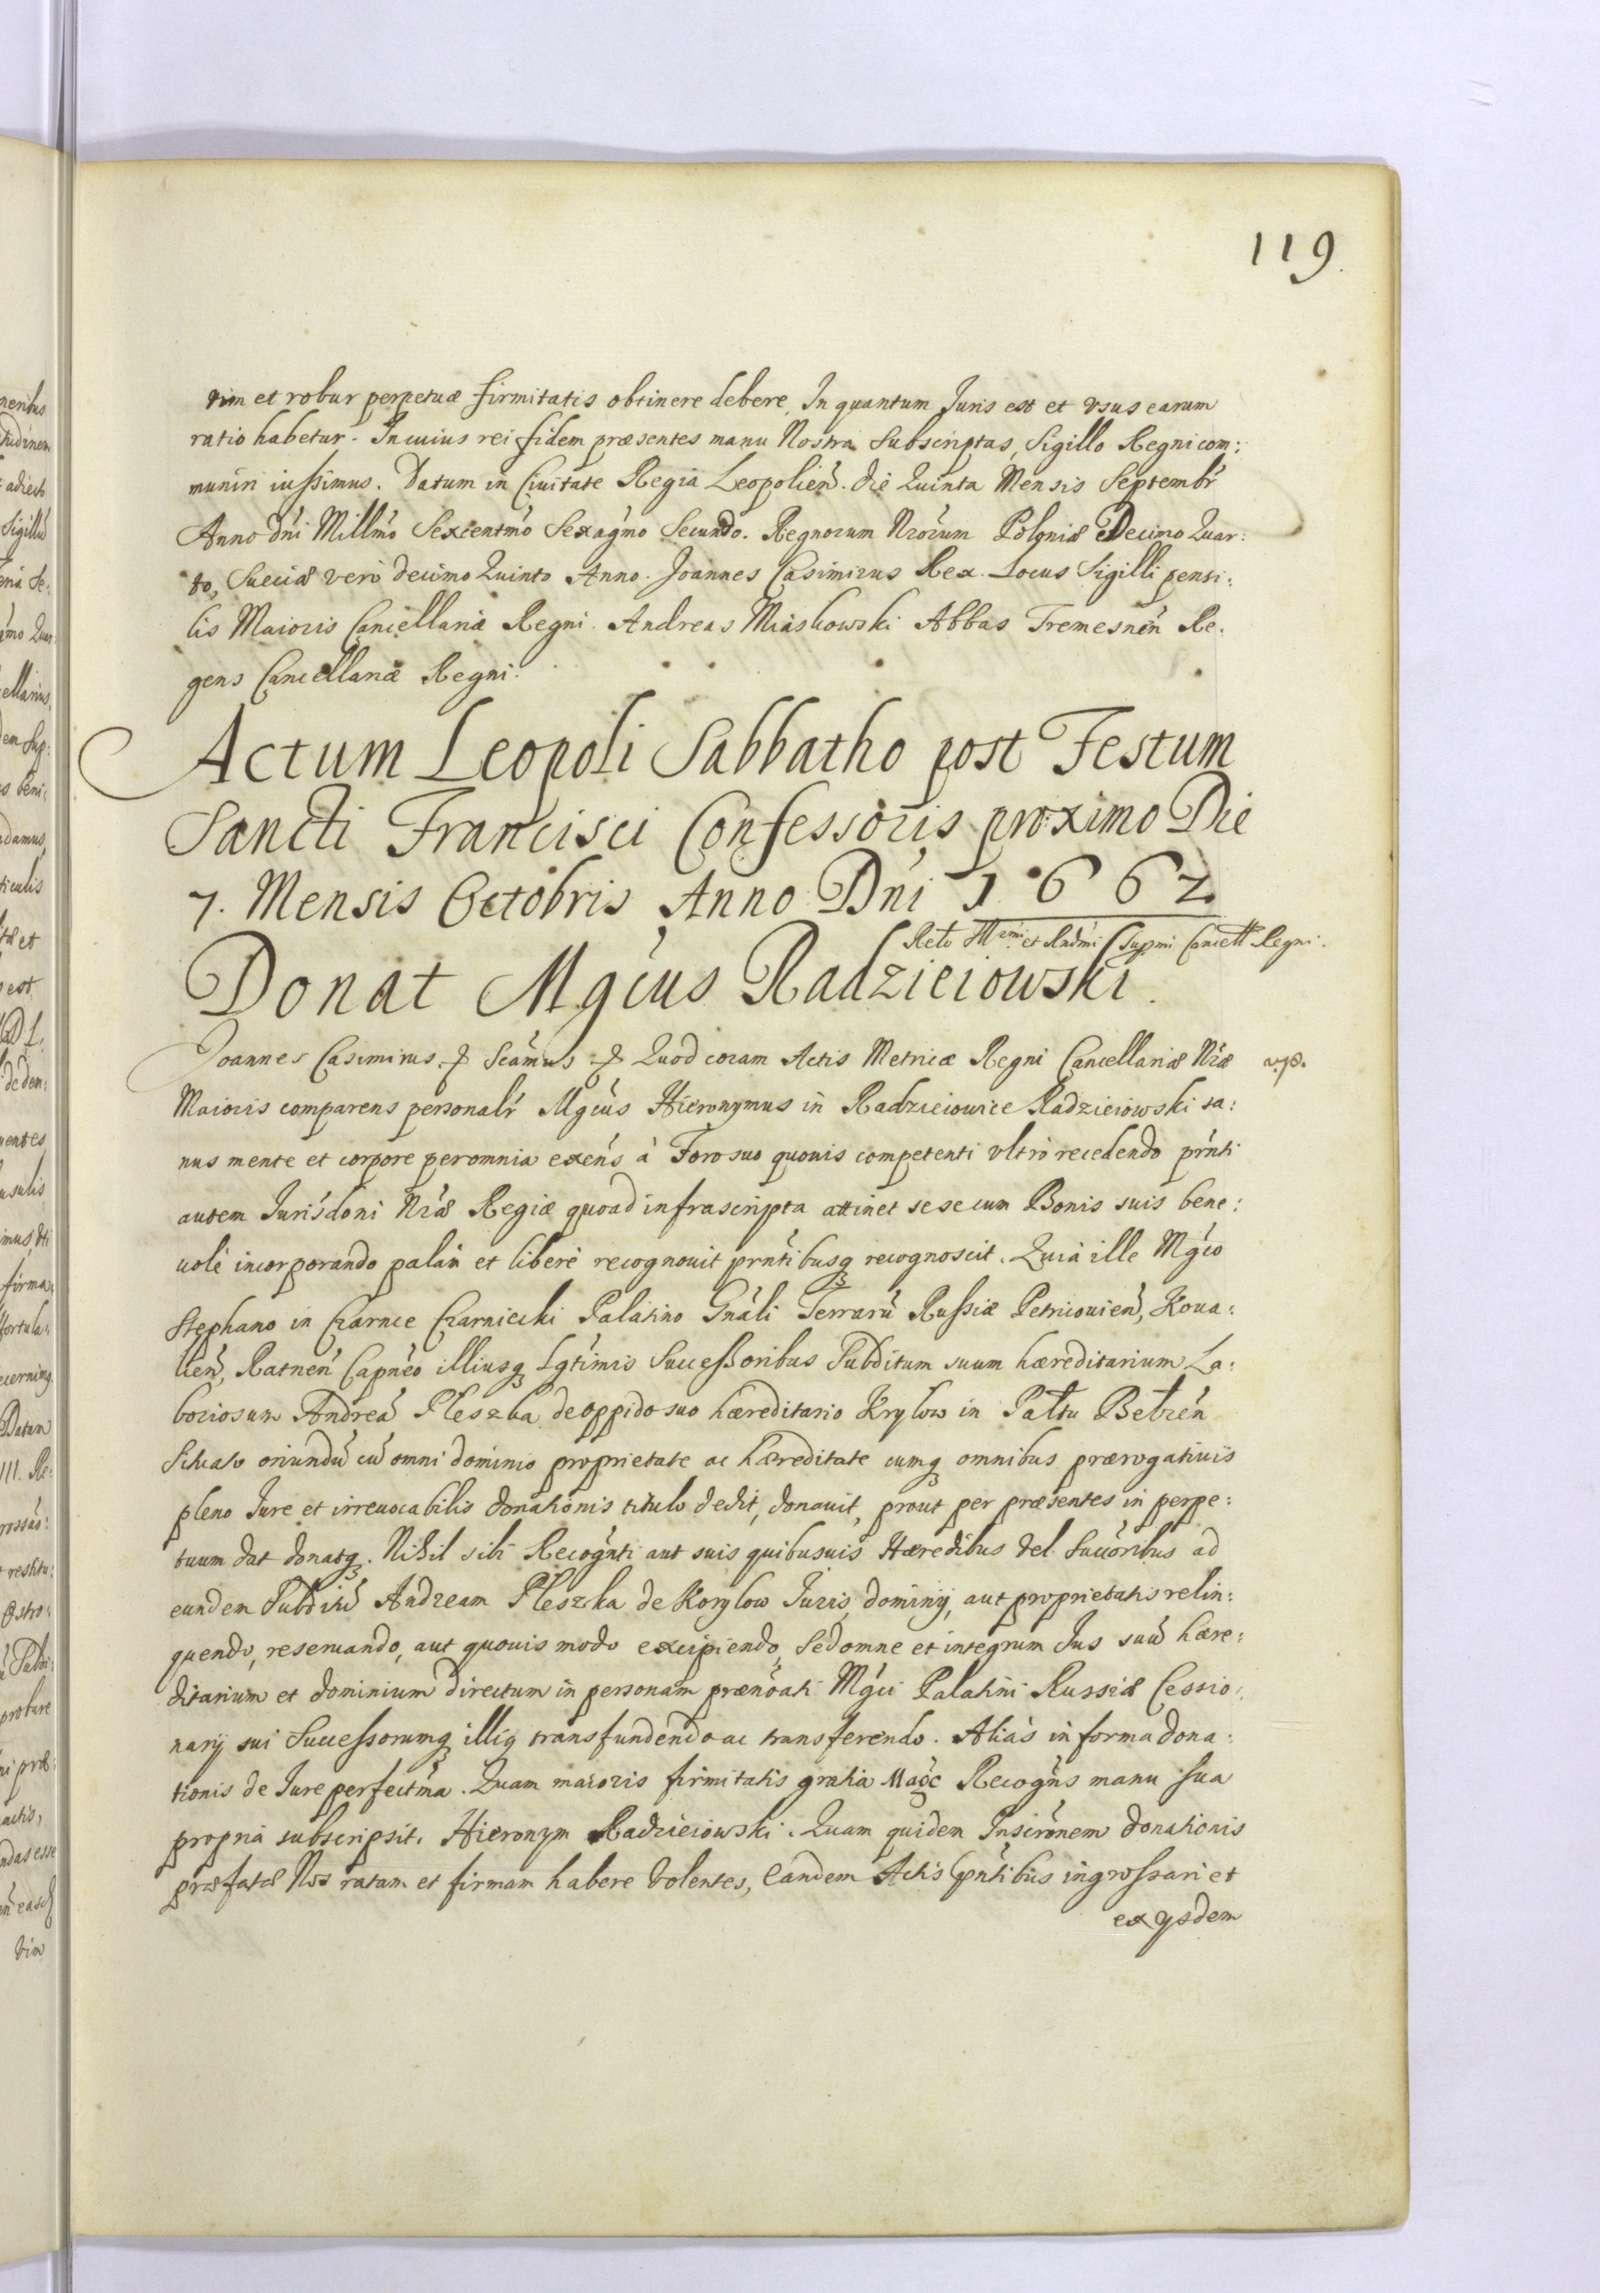 119.
vim et robur perpetuæ firmitatis obtinere debere, In quantum Juris est et vsus earum
ratio habetur. In cuius rei fidem præsentes manu Nostra Subscriptas, Sigillo Regni com:
muniri iussimus. Datum in Ciuitate Regia Leopolien̄. die Quinta Mensis Septembr̄
Anno dn̄i Millm̄o Sexcentm̄o Sexagm̄o Secundo. Regnorum Nr̄orum Poloniæ Decimo Quar:
to, Sueciæ verò decimo Quinto Anno. Joannes Casimirus Rex. Locus Sigilli pensi:
lis Maioris Cancellariæ Regni. Andreas Miaskowski Abbas Tremesnen̄ Re:
gens Cancellariæ Regni.
Actum Leopoli Sabbatho post Festum
Sancti Francisci Confessoris proximo Die
7. Mensis Octobris Anno Dn̄i 1662
Relō Illmi et Rndm̄i Supmi Cancell Regni.
Donat Mgcus Radzieiowski.
Joannes Casimirus Scām̄us Quod coram Actis Metricæ Regni Cancellariæ Nr̄æ
Maioris comparens personalr̄ Mgcūs Hieronymus in Radzieiowice Radzieiowski sa:
nus mente et corpore per omnia exen̄s à Foro suo quouis competenti vltrò recedendo prn̄ti
autem Jurisdōni Nr̄æ Regiæ quoad infrascripta attinet se se cum Bonis suis bene:
uolè incorporando palàm et liberè recognouit prn̄tibusq recognoscit. Quia ille Mgco
Stephano in Czarnce Czarniecki Palatino Gnāli Terrarū Russiæ Petricouien̄, Koua:
lien̄, Ratnen̄ Capnēo illiusq Lgtīmis Successoribus Subditum suum hæreditarium La:
boriosum Andreā Pleszka de oppido suo hæreditario Krylow in Paltu Betzen̄
oriundū cū omni dominio proprietate ac hæreditate cumq omnibus prærogatiuis
pleno Jure et irreuocabilis donationis titulo dedit, donauit, prout per præsentes in perpe:
tuum dat donatq. Nihil sibi Recogn̄ti aut suis quibusuis Hæredibus vel Succōribus ad
eundem Subditū Andream Pleszka de Korylow Juris, dominij, aut proprietatis relin:
quendo, reseruando, aut quouis modo excipiendo, Sed omne et integrum Jus suū hære:
ditarium et dominium directum in personam prænōati Mgci Palatini Russiæ Cessio:
narij sui Successorumq illiq transfundendo ac transferendo. Aliàs in forma dona:
tionis de Jure perfectm̄a. Quam maioris firmitatis gratia Recogn̄s manu sua
propria subscripsit. Hieronym Radzieiowski. Quam quidem Inscrōnem donationis
præfatæ Nos ratam et firmam habere Volentes, Eandem Actis prn̄tibus ingrossari et
ex ysdem